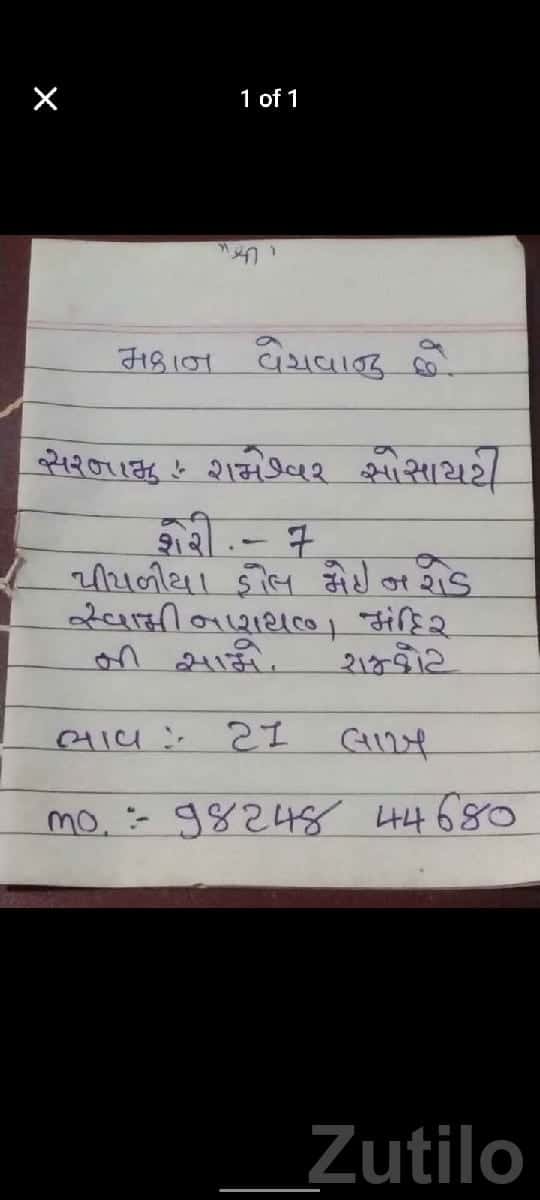 1 of 1
"શ્રી"
મકાન વેચવાનુ છે.
સરનામુ :- રામેશ્વર સોસાયટી
શેરી.- 7
પીપળીયા હોલ મેઇન રોડ
સ્વામીનારાયણ, મંદિર
ની સામે. રાજકોટ
ભાવ :- 21 લાખ
mo. :- 98248 44680
Zutilo